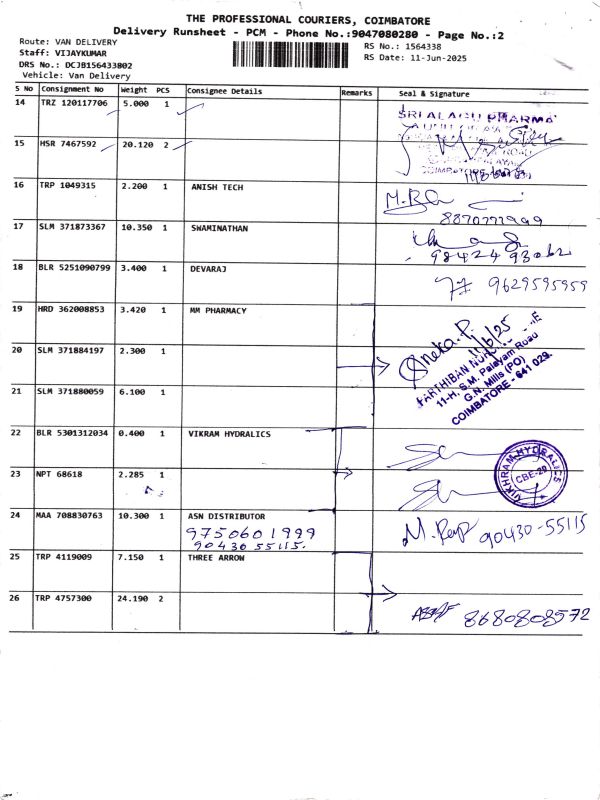 THE PROFESSIONAL COURIERS, COIMBATORE
Delivery Runsheet - PCM - Phone No.:9047080280 - Page No.:2
Route: VAN DELIVERY
RS No.: 1564338
Staff: VIJAYKUMAR
RS Date: 11-Jun-2025
DRS No.: DCJB156433802
Vehicle: Van Delivery
S No Consignment No Weight PCS Consignee Details Remarks Seal & Signature
14 TRZ 120117706 5.000 1
SRI ALAGU PHARMA
15 HSR 7467592 20.120 2
16 TRP 1049315 2.200 1 ANISH TECH
8870777999
17 SLM 371873367 10.350 1 SWAMINATHAN
98424 93062
18 BLR 5251090799 3.400 1 DEVARAJ
9629595959
19 HRD 362008853 3.420 1 MM PHARMACY
20 SLM 371884197 2.300 1
Sneka.P.
11/6/25
11-H, S.M. Palayam Road
G.N. Mills (PO)
COIMBATORE - 641 029.
21 SLM 371880059 6.100 1
22 BLR 5301312034 0.400 1 VIKRAM HYDRALICS
VIKHRAM HYDRALICS
CBE-29
23 NPT 68618 2.285 1
24 MAA 708830763 10.300 1 ASN DISTRIBUTOR
9750601999
90430 55115.
90430-55115
25 TRP 4119009 7.150 1 THREE ARROW
26 TRP 4757300 24.190 2
8680808572